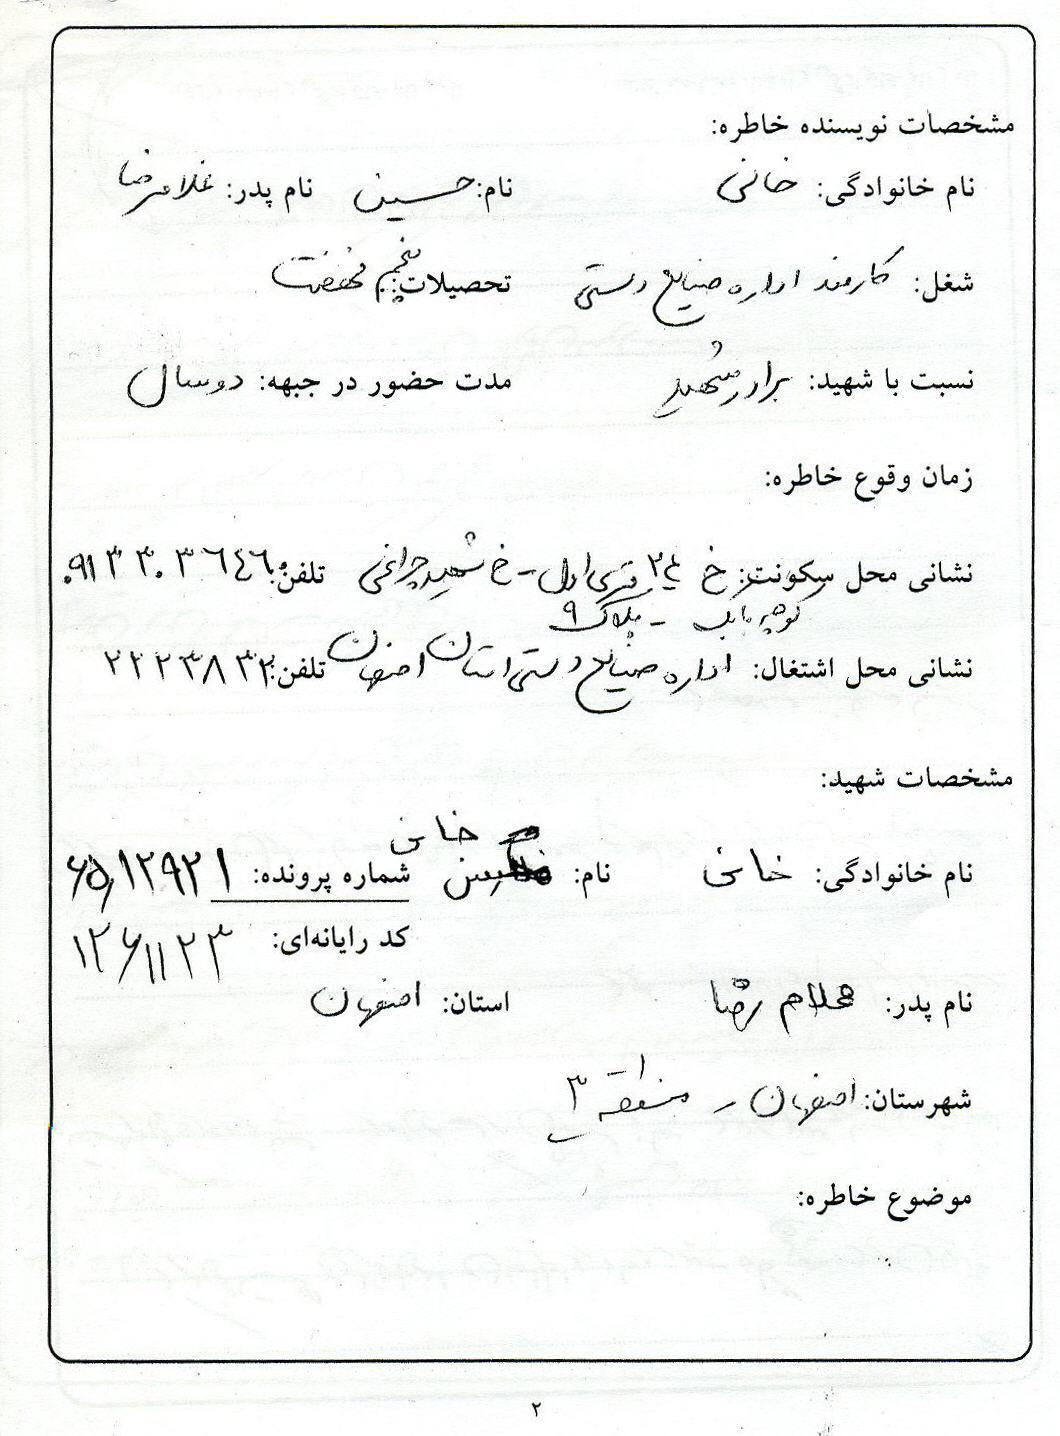 مشخصات نویسنده خاطره:
نام خانوادگی: خانی نام: حسین نام پدر: غلامرضا
شغل: کارمند اداره صنایع دستی تحصیلات: پنجم نهضت
نسبت با شهید: برادر شهید مدت حضور در جبهه: دو سال
زمان وقوع خاطره:
نشانی محل سکونت: خ ۲۴ متری اول - خ شهید چراغی تلفن:
کوچه بابک - پلاک ۹
نشانی محل اشتغال: اداره صنایع دستی استان اصفهان تلفن: ۲۲۲۳۸۳۲
مشخصات شهید:
خانی
نام خانوادگی: خانی نام: شماره پرونده: ۶۵۱۲۹۲۱
کد رایانه‌ای: ۱۲۶۱۱۲۳
نام پدر: غلام رضا استان: اصفهان
شهرستان: اصفهان - منطقه ۳
موضوع خاطره:
۲